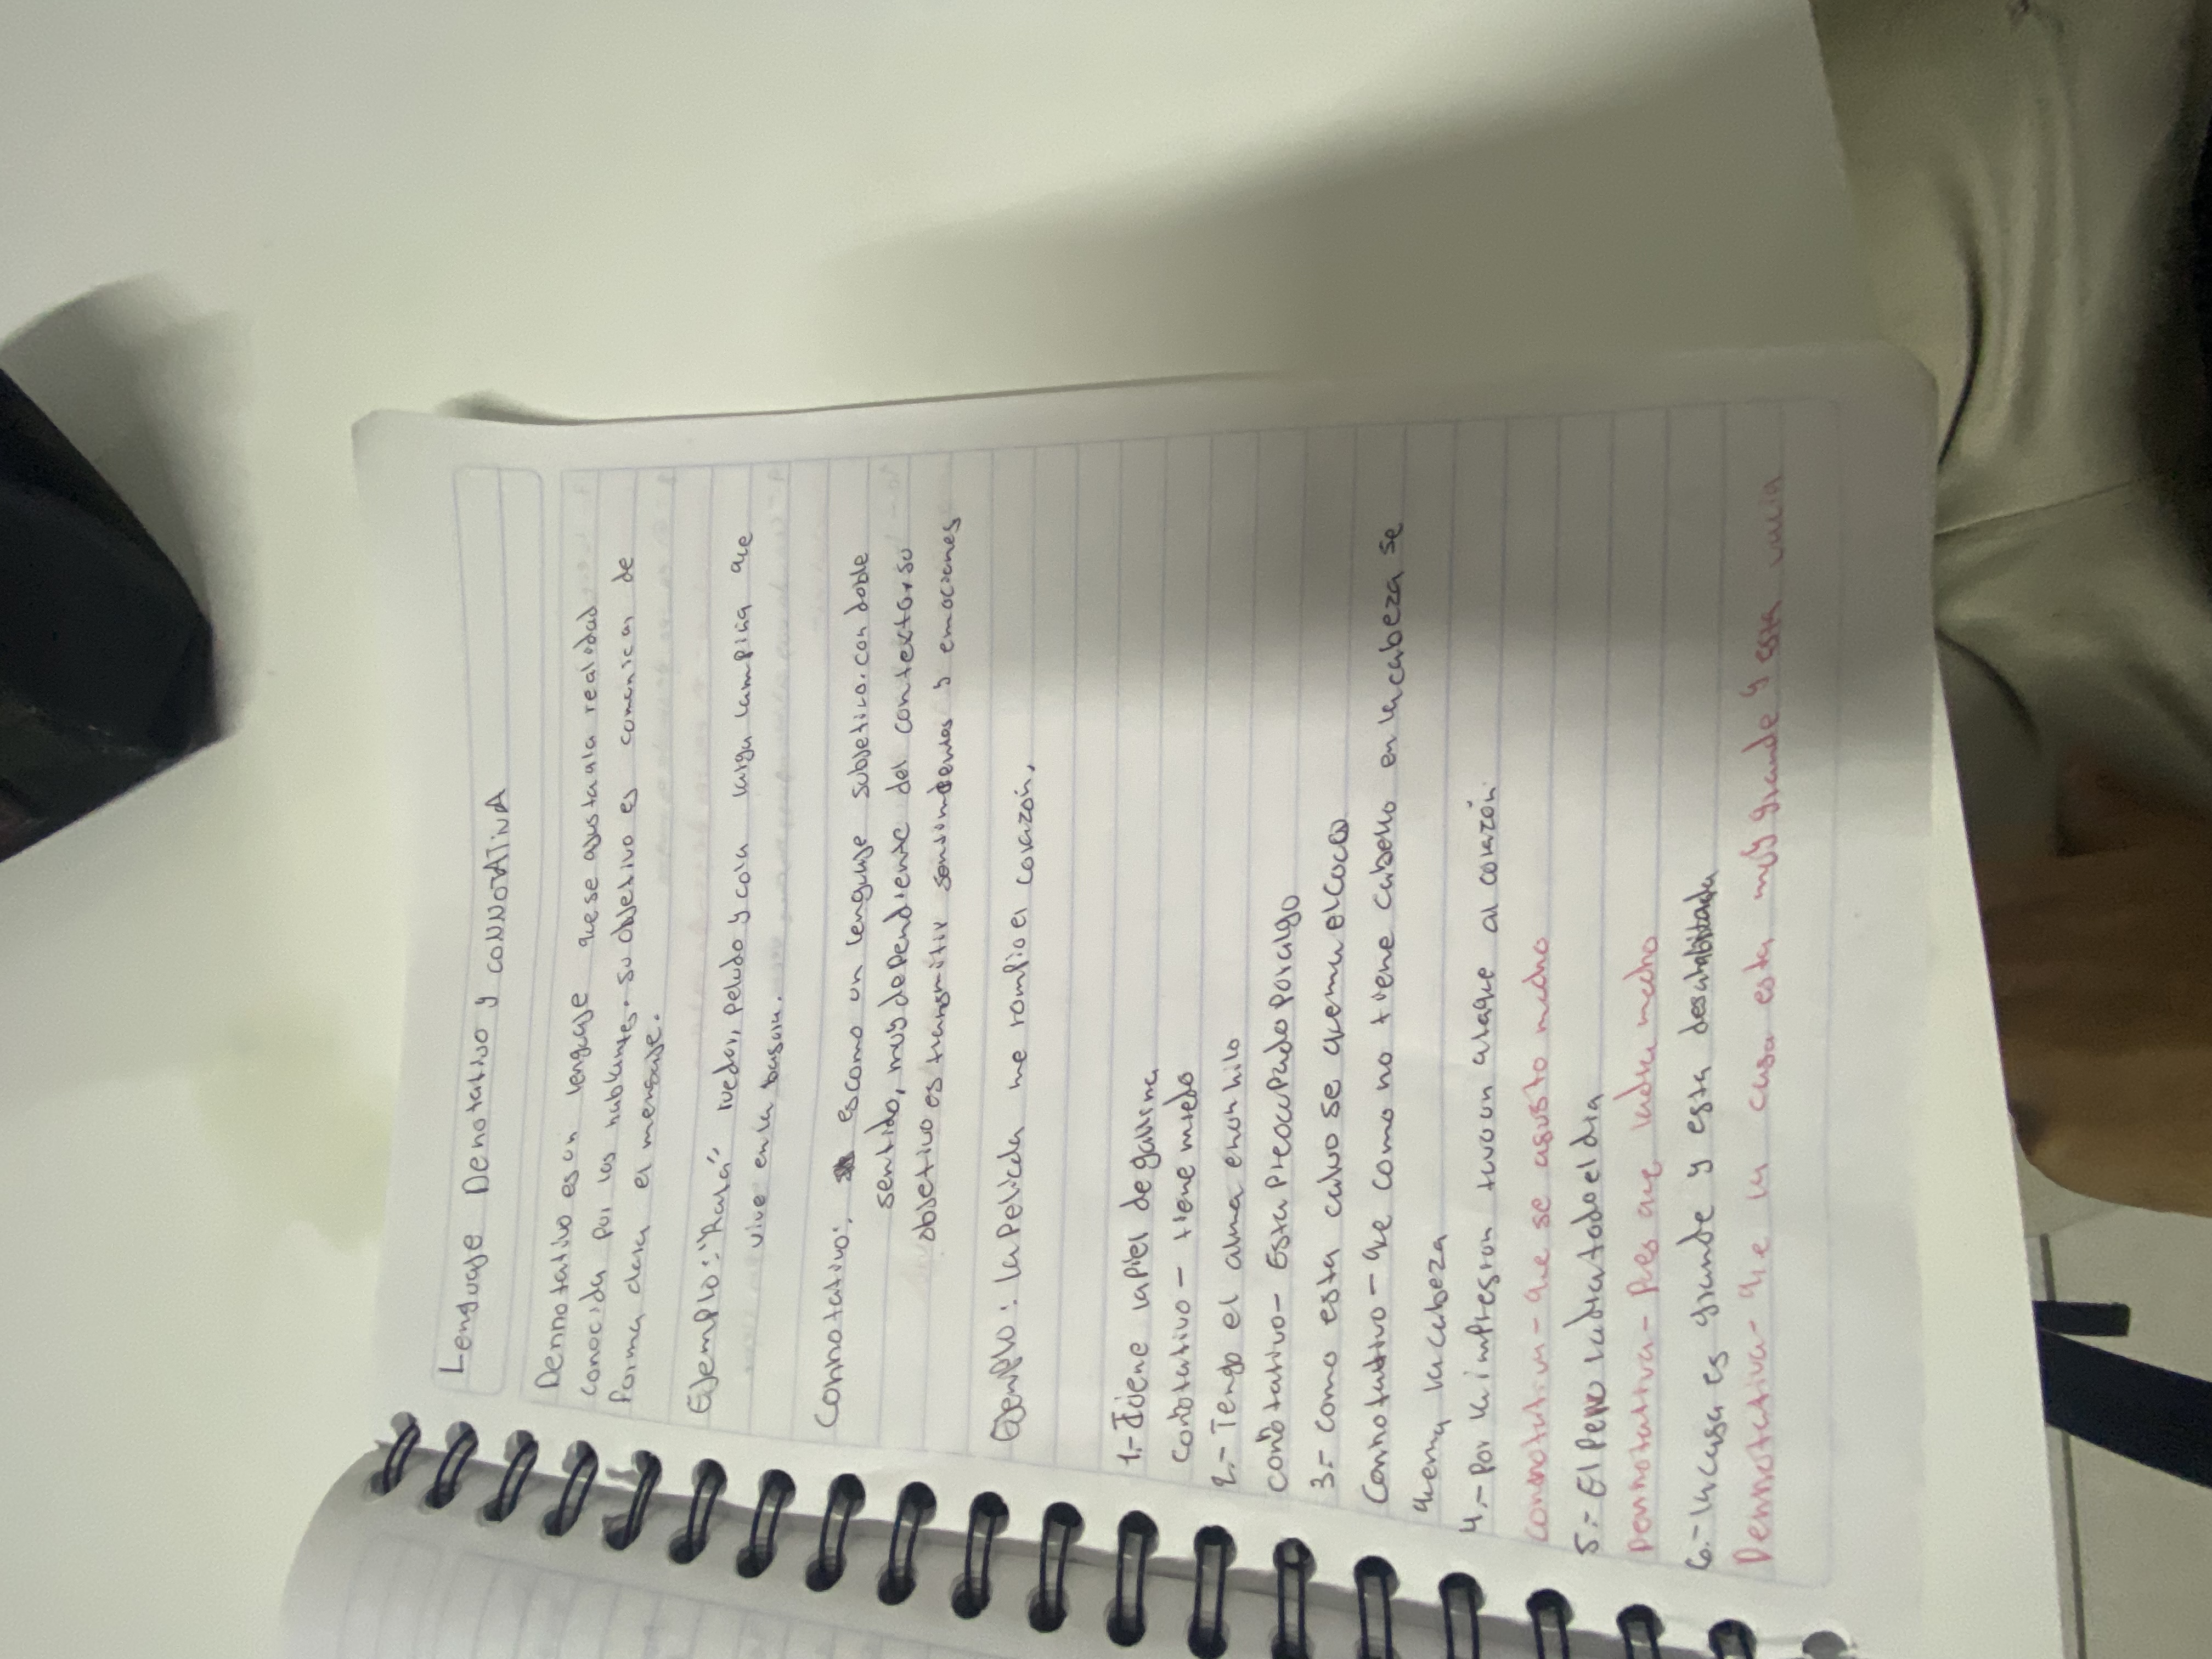 Lenguaje Denotativo y coNNotATivA
Dennotativo es un lenguaje que se ajusta a la realidad
conocida por los hablantes. su objetivo es comunicar de
forma clara el mensaje.
Ejemplo: "Rara" roedor, peludo y cola larga lampiña que
vive en la basura.
Connotativo: es como un lenguaje subjetivo. con doble
sentido, muy dependiente del contexto su
objetivo es transmitir y emociones
Ejemplo: la pelicula me rompio el corazón,
1.- Tiene la piel de gallina
Conotativo - tiene miedo
2.- Tengo el alma en un hilo
conotativo - Esta preocupado por algo
3.- como esta calvo se quema el coco
Connotativo - que como no tiene cabello en la cabeza se
quema la cabeza
4.- Por la impresion tuvo un ataque al corazón.
connotativa - que se asusto mucho
5.- El perro ladra todo el dia
Dennotativa - Pes que ladra mucho
6.- la casa es grande y esta deshabitada
Dennotativa - que la casa esta muy grande y esta vacia